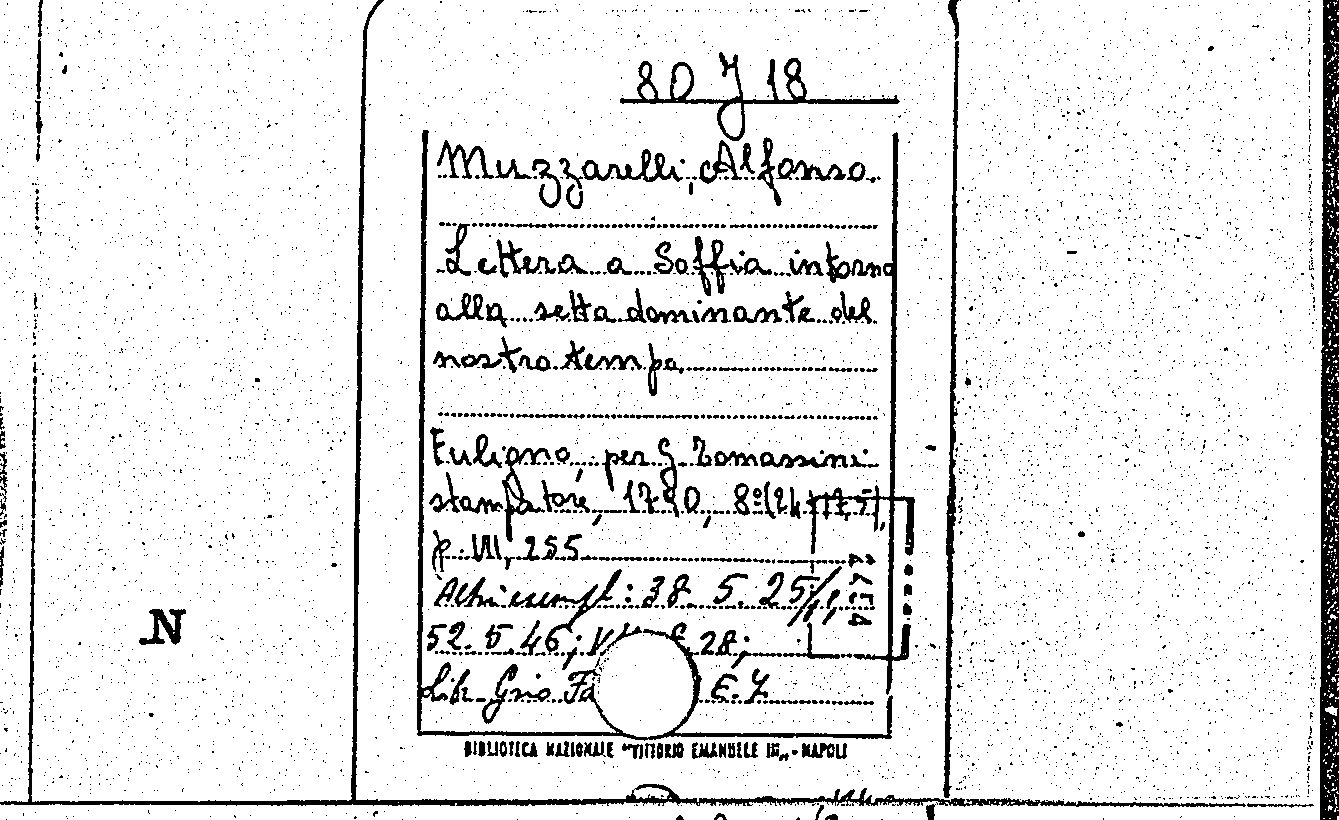 80 J 18
Muzzarelli, Alfonso.
Lettera a Soffia intorno
alla setta dominante del
nostro tempo.
Fuligno, per G. Tomassini
stampatore, 1790, 8º (24
p. VII, 255
Altri esempl: 38. 5. 25/1;
52. 5. 46; 28;
E. 7
N
BIBLIOTECA NAZIONALE "VITTORIO EMANUELE III" - NAPOLI